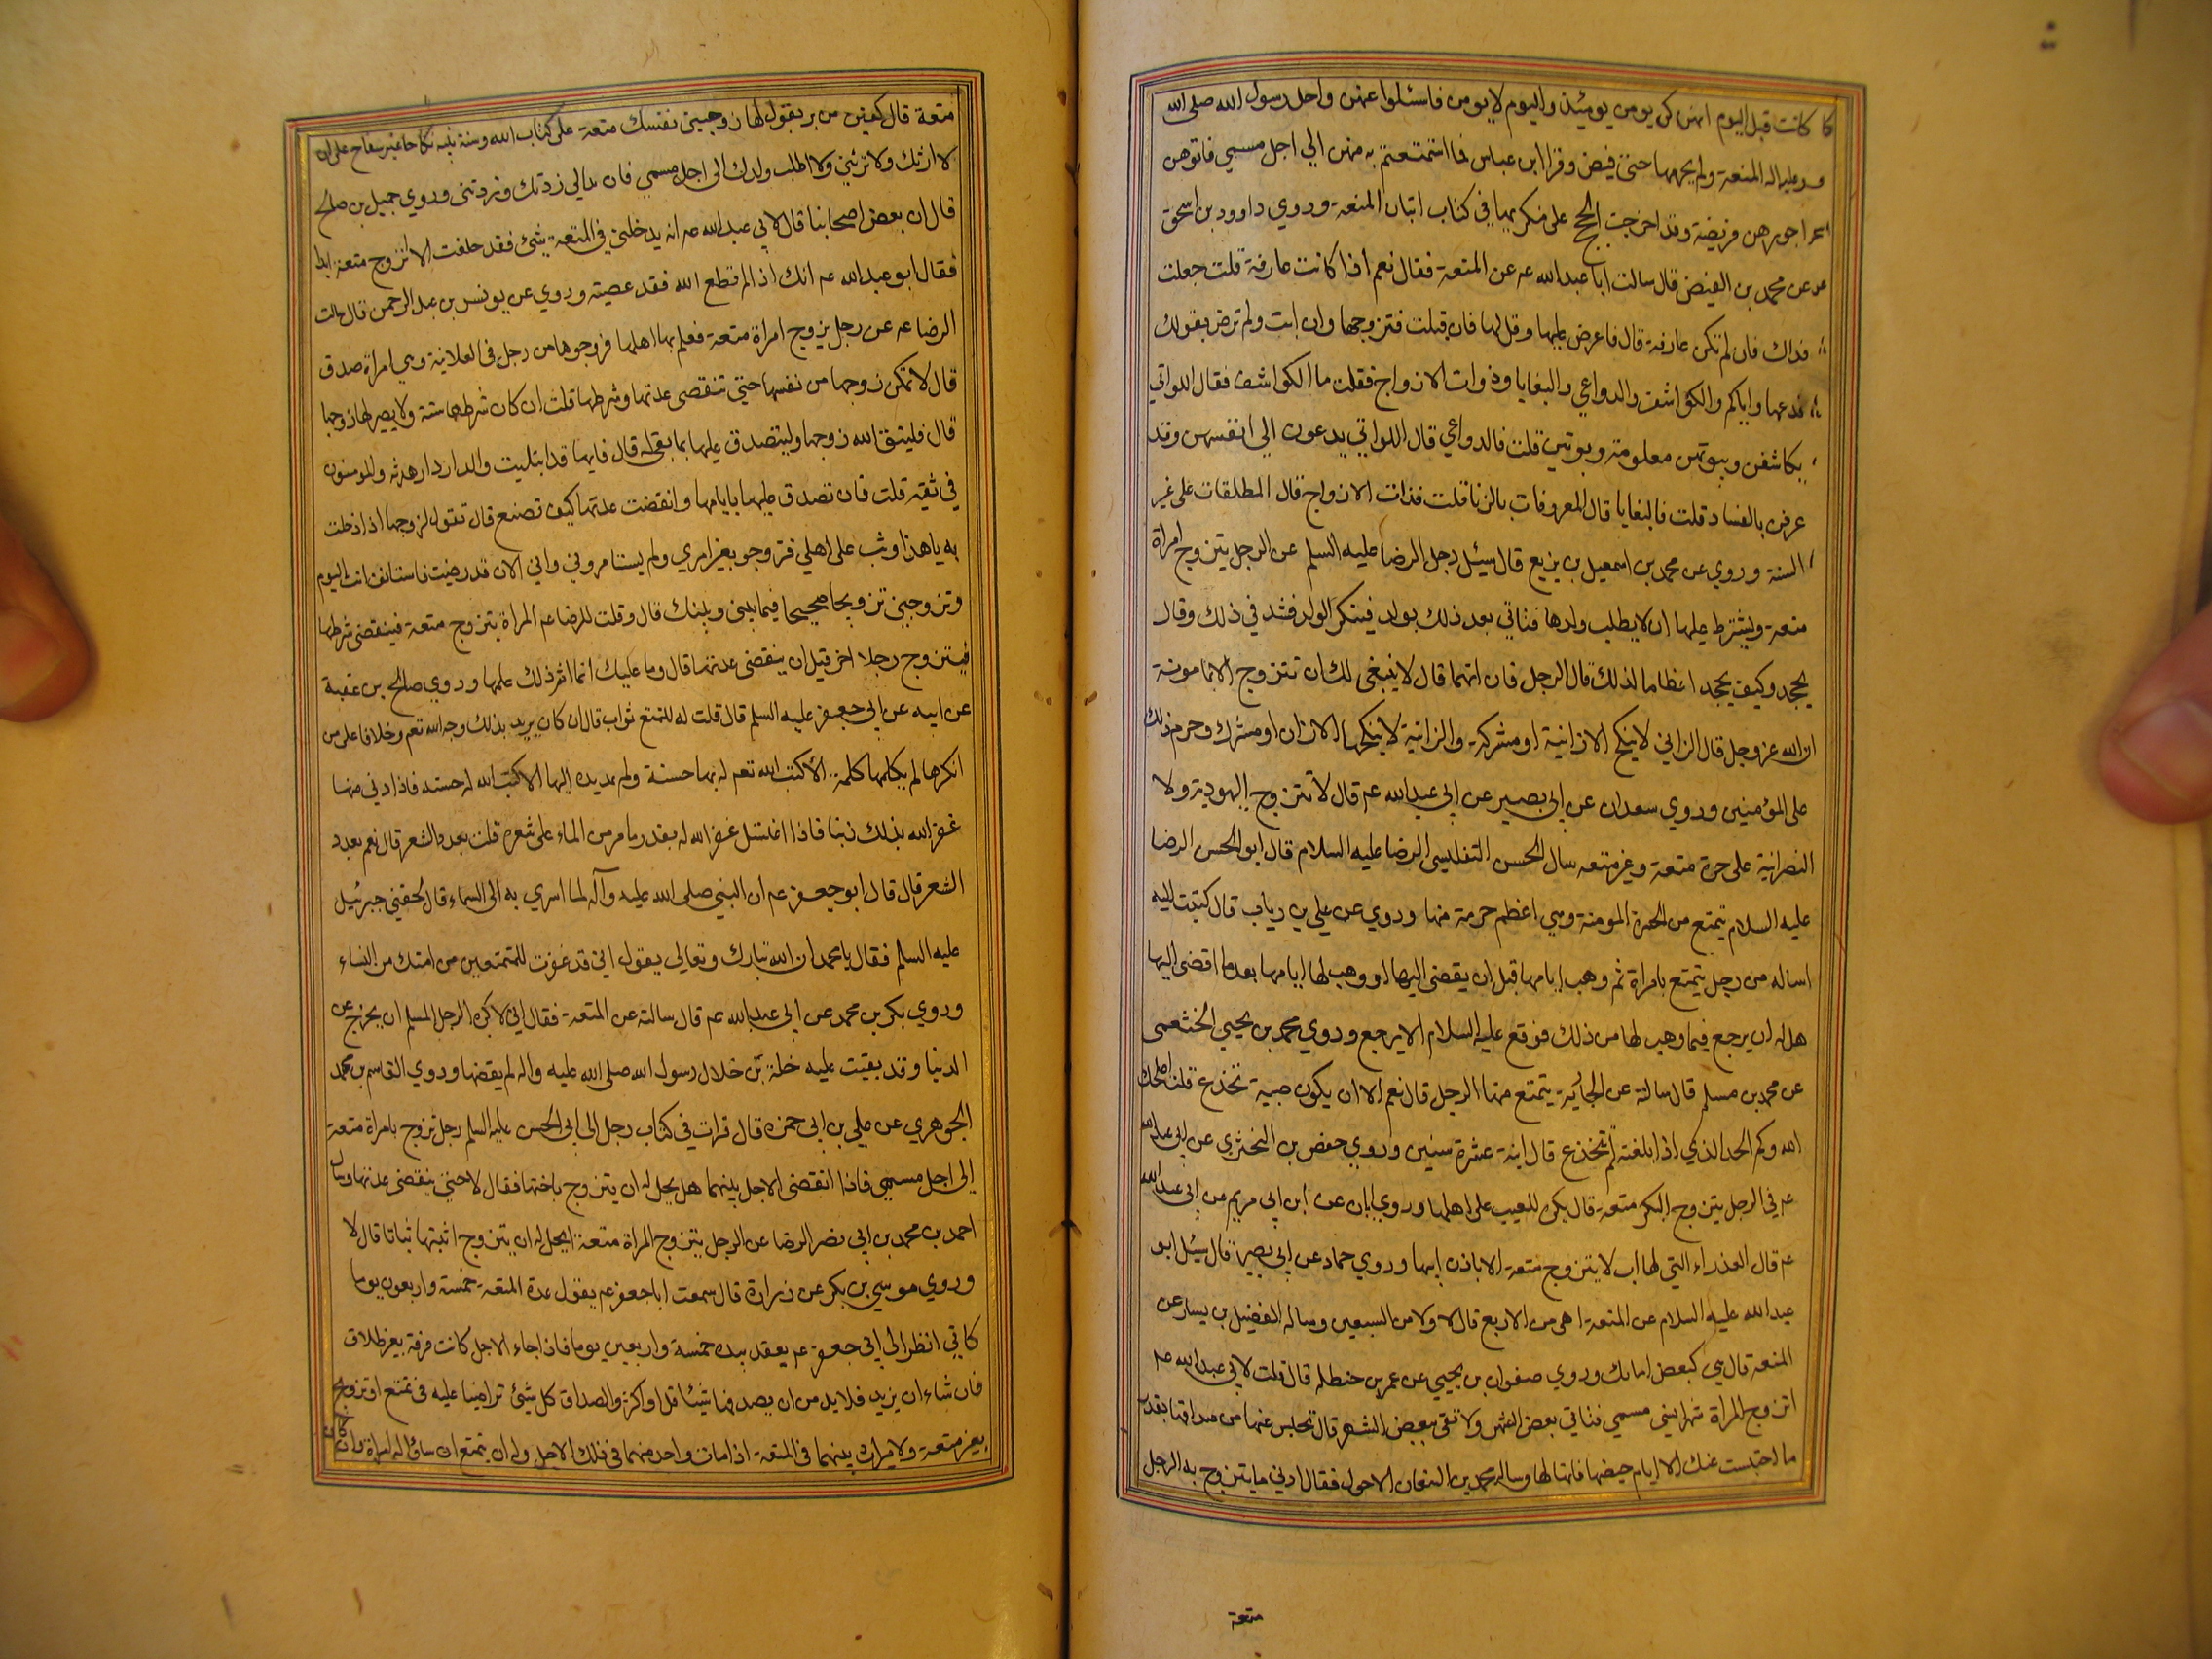 كا كانت قبل اليوم انهن كن يومن يومئذ واليوم لا يومن فاسئلوا عنهن واحل رسول الله صلى الله
عليه واله المتعة ولم يحرمها حتى قبض وقرا ابن عباس فما استمتعتم به منهن الي اجل مسمي فاتوهن
اجورهن فريضة وقد اخرجت الحج على منكريها في كتاب اثبات المتعة وروي داوود بن اسحق
عن محمد بن الفيض قال سالت ابا عبد الله عم عن المتعة فقال نعم اذا كانت عارفة قلت جعلت
فداك فان لم تكن عارفة قال فاعرض عليها وقل لها فان قبلت فتزوجها وان ابت ولم ترض بقولك
فدعها واياكم والكواشف والدواعي والبغايا وذوات الازواج فقلت ما الكواشف فقال اللواتي
يكاشفن وبيوتهن معلومة ويوتين قلت فالدواعي قال اللواتي يدعون الي انفسهن وقد
عرفن بالفساد قلت فالبغايا قال المعروفات بالزنا قلت فذات الازواج قال المطلقات على غير
السنة وروي عن محمد بن اسمعيل بن بزيع قال سئل رجل الرضا عليه السلم عن الرجل يتزوج امراة
متعة ويشترط عليها ان لا يطلب ولدها فتاتي بعد ذلك بولد فينكر الولد فشد في ذلك وقال
يجحد وكيف يجحد اعظاما لذلك قال الرجل فان اتهمها قال لا ينبغي لك ان تتزوج الا مامونة
ان الله عز وجل قال الزاني لا ينكح الا زانية او مشركة والزانية لا ينكحها الا زان او مشرك وحرم ذلك
على المؤمنين وروي سعدان عن ابي بصير عن ابي عبد الله عم قال لا تتزوج اليهودية ولا
النصرانية على حرة متعة وغير متعه سال الحسن التفليسي الرضا عليه السلام قال ابو الحسن الرضا
عليه السلام يتمتع من الحرة المومنة وهي اعظم حرمة منها وروي عن علي بن رياب قال كتبت اليه
اساله عن رجل يتمتع بامراة ثم وهب ايامها قبل ان يفضى اليها او وهب لها ايامها بعد ما افضى اليها
هل له ان يرجع فيما وهب لها من ذلك فوقع عليه السلام لا يرجع وروي محمد بن يحيى الخثعمى
عن محمد بن مسلم قال سالته عن الجارية يتمتع منها الرجل قال نعم الا ان يكون صبية تخدع قلت اصلحك
الله وكم الحد الذي اذا بلغته لم تخدع قال ابنة عشرة سنين وروي حفص بن البختري عن ابي عبد الله
عم في الرجل يتزوج البكر متعة قال يكره للعيب على اهلها وروي ابان عن ابن ابي مريم عن ابي عبد الله
عم قال العذراء التي لها اب لا يتزوج متعة الا باذن ابيها وروي حماد عن ابي بصير قال سئل ابو
عبد الله عليه السلام عن المتعة اهي من الاربع قال لا ولا من السبعين وساله الفضيل بن يسار عن
المتعة قال هي كبعض امائك وروي صفوان بن يحيي عن عمر بن حنظلة قال قلت لابي عبد الله عم
اتزوج المراة شهرا بشي مسمي فتاتي بعض الشهر ولا تفى ببعض الشهر قال تحبس عنها من صداقها بقدر
ما احتبست عنك الا ايام حيضها فانها لها وساله محمد بن النعمان الاحول فقال ادني ما يتزوج به الرجل
متعة
متعة قال كفين من بر يقول لها زوجيني نفسك متعة على كتاب الله وسنة نبيه نكاحا غير سفاح على ان
لا ارثك ولا ترثيني ولا اطلب ولدك الى اجل مسمي فان بدا لي زدتك وزدتني وروي جميل بن صالح
قال ان بعض اصحابنا قال لابي عبد الله عم انه يدخلني في المتعة شيئ فقد حلفت الا اتزوج متعة ابدا
فقال ابو عبد الله عم انك اذا لم تطع الله فقد عصيته وروي عن يونس بن عبد الرحمن قال سالت
الرضا عم عن رجل يزوج امراة متعة فعلم بها اهلها فزوجوها من رجل في العلانية وهي امراة صدق
قال لا تمكن زوجها من نفسها حتي تنقضي عدتها وشرطها قلت ان كان شرطها سنة ولا يصبر لها زوجها
قال فليتق الله زوجها وليتصدق عليها بما بقي له قال فانها قد ابتليت والدار دار هدنة والمومنون
في تقية قلت فان تصدق عليها بايامها وانقضت عدتها كيف تصنع قال تقول لزوجها اذا دخلت
به يا هذا وثب على اهلي فزوجو بغير امري ولم يستامروني واني الان قد رضيت فاستانف انت اليوم
وتزوجني تزويجا صحيحا فيما بيني وبينك قال وقلت للرضا عم المراة يتزوج متعة فينقضي شرطها
فيتزوج رجلا اخر قبل ان ينقضي عدتها قال وما عليك انما اثم ذلك عليها وروي صالح بن عقبة
عن ابيه عن ابي جعفر عليه السلم قال قلت له للمتمتع ثواب قال ان كان يريد بذلك وجه الله تعم وخلافا على من
انكرها لم يكلمها كلمة الا كتب الله تعم له بها حسنة ولم يمد يده اليها الا كتب الله له حسنه فاذا دنى منها
غفر الله بذلك ذنبا فاذا اغتسل غفر الله له بقدر ما مر من الماء على شعره قلت بعدد الشعر قال نعم بعدد
الشعر قال قال ابو جعفر عم ان النبي صلى الله عليه وآله لما اسري به الى السماء قال لحقني جبرئيل
عليه السلم فقال يا محمد ان الله تبارك وتعالى يقول اني قد غفرت للمتمتعين من امتك من النساء
وروي بكر بن محمد عن ابي عبد الله عم قال سالته عن المتعة فقال اني لاكره الرجل المسلم ان يخرج عن
الدنيا وقد بقيت عليه خلة من خلال رسول الله صلى الله عليه واله لم يقضها وروي القاسم بن محمد
الجوهري عن علي بن ابي حمزه قال قرات في كتاب رجل الى ابي الحسن عليه السلم رجل تزوج بامراة متعة
الى اجل مسمي فاذا انقضى الاجل بينهما هل يحل له ان يتزوج باختها فقال لا حتي ينقضي عدتها وسال
احمد بن محمد بن ابي نصر الرضا عن الرجل يتزوج المراة متعة ايحل له ان يتزوج ابنتها ثباتا قال لا
وروي موسي بن بكر عن زرارة قال سمعت ابا جعفر عم يقول عدة المتعة خمسة واربعون يوما
كاني انظر الى ابي جعفر عم يعقد بيده خمسة واربعين يوما فاذا جاء الاجل كانت فرقة بغير طلاق
فان شاء ان يزيد فلا بد من ان يصدقها شيئا قل او اكثر والصداق كل شيئ تراضيا عليه في تمتع او تزويج
بغير متعة ولا ميراث بينهما في المتعة اذا مات واحد منهما في ذلك الاجل وله ان تمتع ان شاء وله امراة وان كان